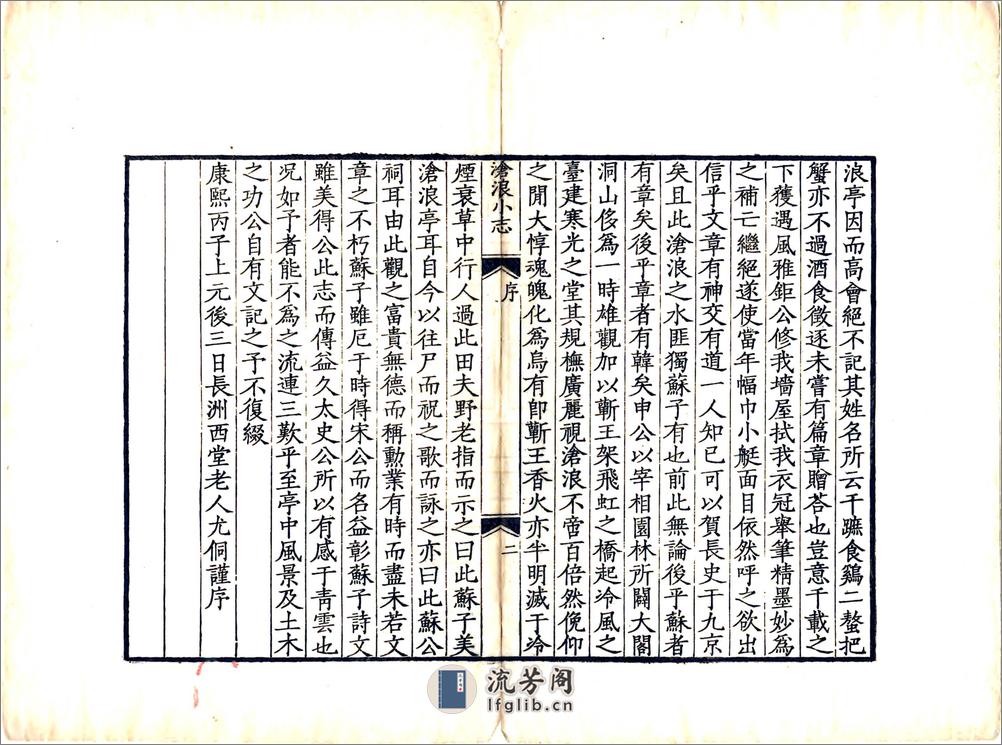 浪亭因而高會絕不記其姓名所云千蹠食鷄二螯把
蟹亦不過酒食徵逐未嘗有篇章贈荅也豈意千載之
下獲遇風雅鉅公修我墻屋拭我衣冠舉筆精墨妙爲
之補亡繼絕遂使當年幅巾小艇面目依然呼之欲出
信乎文章有神交有道一人知已可以賀長史于九京
矣且此滄浪之水匪獨蘇子有也前此無論後乎蘇者
有章矣後乎章者有韓矣申公以宰相園林所闢大閣
洞山侈爲一時雄觀加以蘄王架飛虹之橋起冷風之
臺建寒光之堂其規橅廣麗視滄浪不啻百倍然俛仰
之閒大惇魂魄化爲烏有卽蘄王香火亦半明滅于冷
滄浪小志
序
二
煙衰草中行人過此田夫野老指而示之曰此蘇子美
滄浪亭耳自今以往尸而祝之歌而詠之亦曰此蘇公
祠耳由此觀之富貴無德而稱勳業有時而盡未若文
章之不朽蘇子雖厄于時得宋公而名益彰蘇子詩文
雖美得公此志而傳益久太史公所以有感于靑雲也
况如予者能不爲之流連三歎乎至亭中風景及土木
之功公自有文記之予不復綴
康熙丙子上元後三日長洲西堂老人尤侗謹序
流芳阁
lfglib.cn